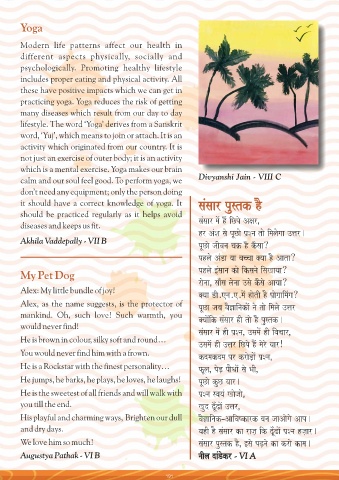 Yoga
Modern life patterns affect our health in
different aspects physically, socially and
psychologically. Promoting healthy lifestyle
includes proper eating and physical activity. All
these have positive impacts which we can get in
practicing yoga. Yoga reduces the risk of getting
many diseases which result from our day to day
lifestyle. The word 'Yoga' derives from a Sanskrit
word, 'Yuj', which means to join or attach. It is an
activity which originated from our country. It is
not just an exercise of outer body; it is an activity
which is a mental exercise. Yoga makes our brain
calm and our soul feel good. To perform yoga, we
don't need any equipment; only the person doing
it should have a correct knowledge of yoga. It
should be practiced regularly as it helps avoid
diseases and keeps us fit.
Akhila Vaddepally - VII B
My Pet Dog
Alex: My little bundle of joy!
Alex, as the name suggests, is the protector of
mankind. Oh, such love! Such warmth, you
would never find!
He is brown in colour, silky soft and round…
You would never find him with a frown.
He is a Rockstar with the finest personality…
He jumps, he barks, he plays, he loves, he laughs!
He is the sweetest of all friends and will walk with
you till the end.
His playful and charming ways, Brighten our dull
and dry days.
We love him so much?
Augustya Pathak - VI B
Divyanshi Jain - VIII C
संसार पुस्तक है
संसार में हैं छिपे अक्षर,
हर अंश से पूछो प्रश्न तो मिलेगा उत्तर।
पूछो जीवन चक्र है कैसा?
पहले अंडा या बच्चा क्या है आता?
पहले इंसान को किसने सिखाया?
रोना, साँस लेना उसे कैसे आया?
क्या डी.एन.ए.में होती है प्रोग्रामिंग?
पूछा जब वैज्ञानिकों ने तो मिले उत्तर
क्योंकि संसार ही तो है पुस्तक।
संसार में ही प्रश्न, उसमें ही विचार,
उसमें ही उत्तर छिपे हैं मेरे यार!
कदमकदम पर करोड़ों प्रश्न,
फूल, पेड़ पौधों से भी,
पूछो कुछ यार।
प्रश्न स्वयं खोजो,
खुद ढूँढ़ो उत्तर,
वैज्ञानिक-आविष्कारक बन जाओगे आप।
यही है संसार का राज़ कि ढूँढ़ो प्रश्न हज़ार।
संसार पुस्तक है, इसे पढ़ने का करो काम।
नील दांडेकर - VI A